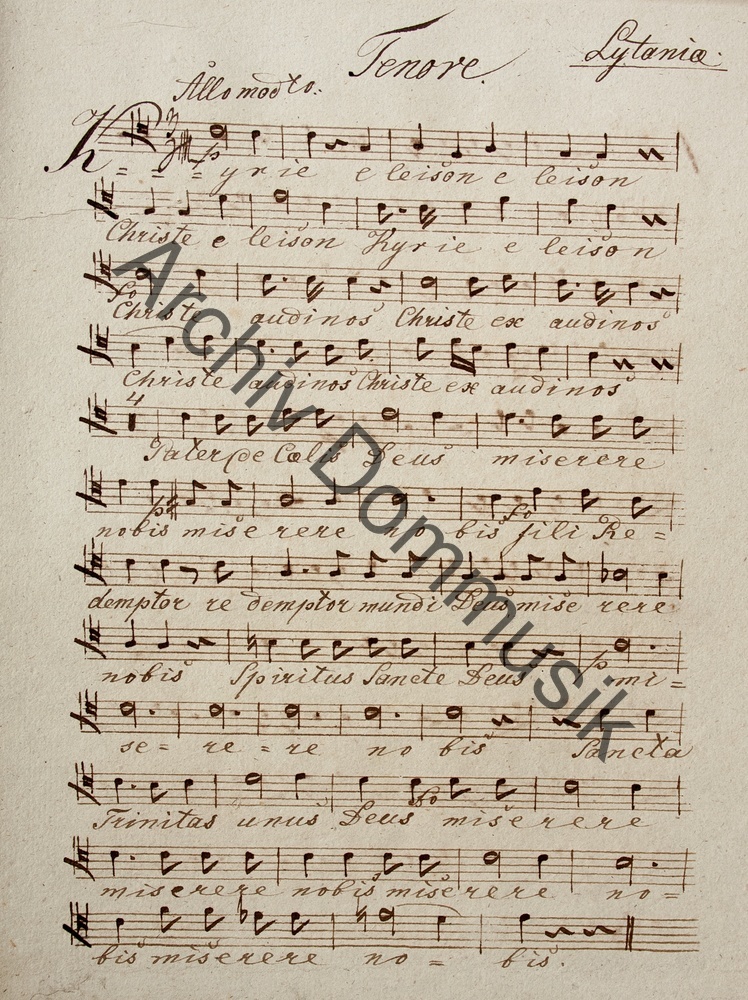 Tenore.
Lytaniæ.
Allo modto:
p
K = = = yrie e leison e leison
Christe e leison Kyrie e leison
fo
Christe audinos Christe ex audinos
Christe audinos Christe ex audinos
4
Pater de Cœlis Deus miserere
p fo
nobis miserere no bis fili Re =
demptor re demptor mundi Deus mise rere
p
nobis Spiritus Sancte Deus mi =
se = re = re no bis Sancta
fo
Trinitas unus Deus miserere
miserere nobis miserere no =
bis miserere no = bis.
Archiv Dommusik